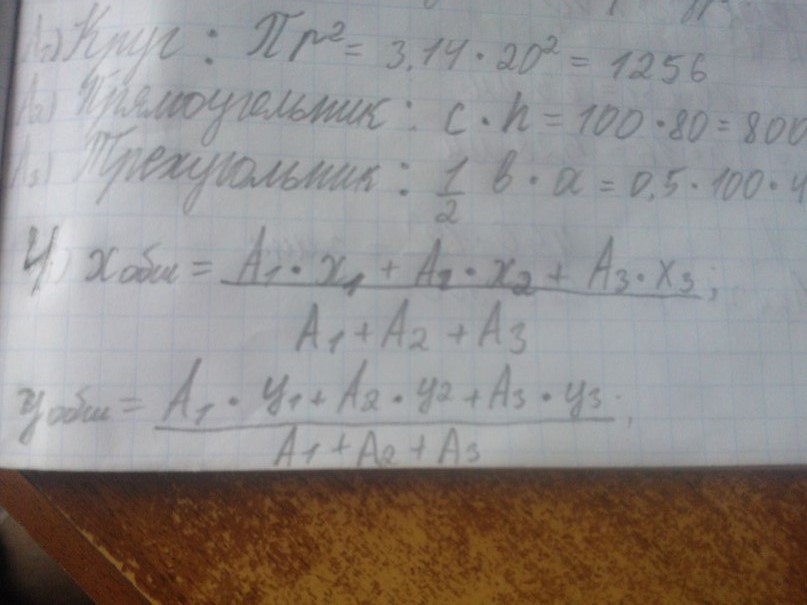 A₁) Круг: Пr² = 3,14 · 20² = 1256
A₂) Прямоугольник: c · h = 100 · 80 = 800
A₃) Трехугольник: 1/2 в · a = 0,5 · 100 · 4
4) x общ = A₁ · x₁ + A₂ · x₂ + A₃ · x₃ ;
A₁ + A₂ + A₃
y общ = A₁ · y₁ + A₂ · y₂ + A₃ · y₃ ;
A₁ + A₂ + A₃